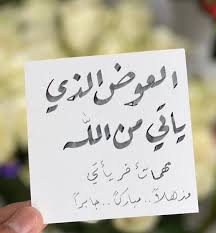 العوض الذي
يأتي من الله
مهما تأخر يأتي
مذهلاً.. مباركاً.. جابراً